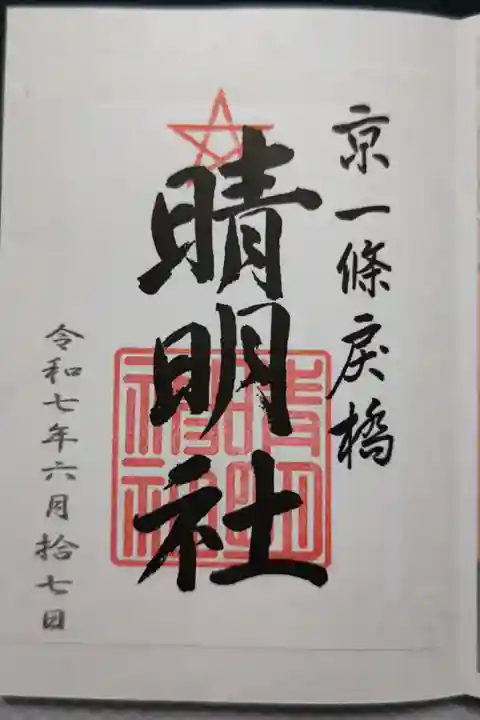 京一條戻橋
晴明社
晴明神社
令和七年六月拾七日